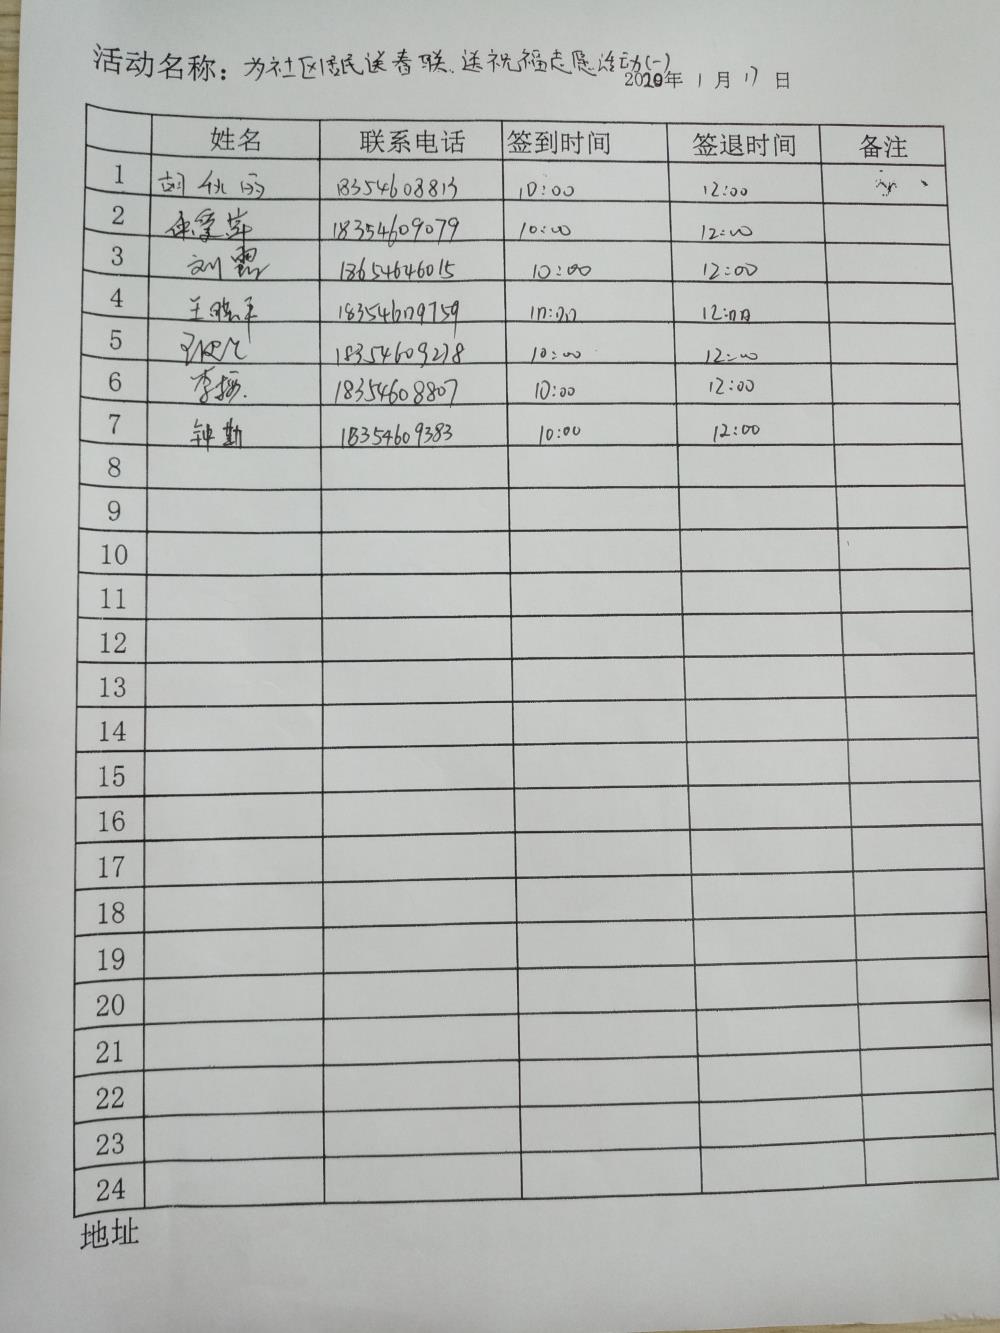 活动名称：为社区居民送春联、送祝福志愿活动(一)
2020年 1 月 17 日
姓名 联系电话 签到时间 签退时间 备注
1 胡秋雨 18354608813 10:00 12:00
2 18354609079 10:00 12:00
3 刘霞 18654646015 10:00 12:00
4 王晓平 18354609759 10:00 12:00
5 18354609278 10:00 12:00
6 李 18354608807 10:00 12:00
7 钟勤 18354609383 10:00 12:00
8
9
10
11
12
13
14
15
16
17
18
19
20
21
22
23
24
地址